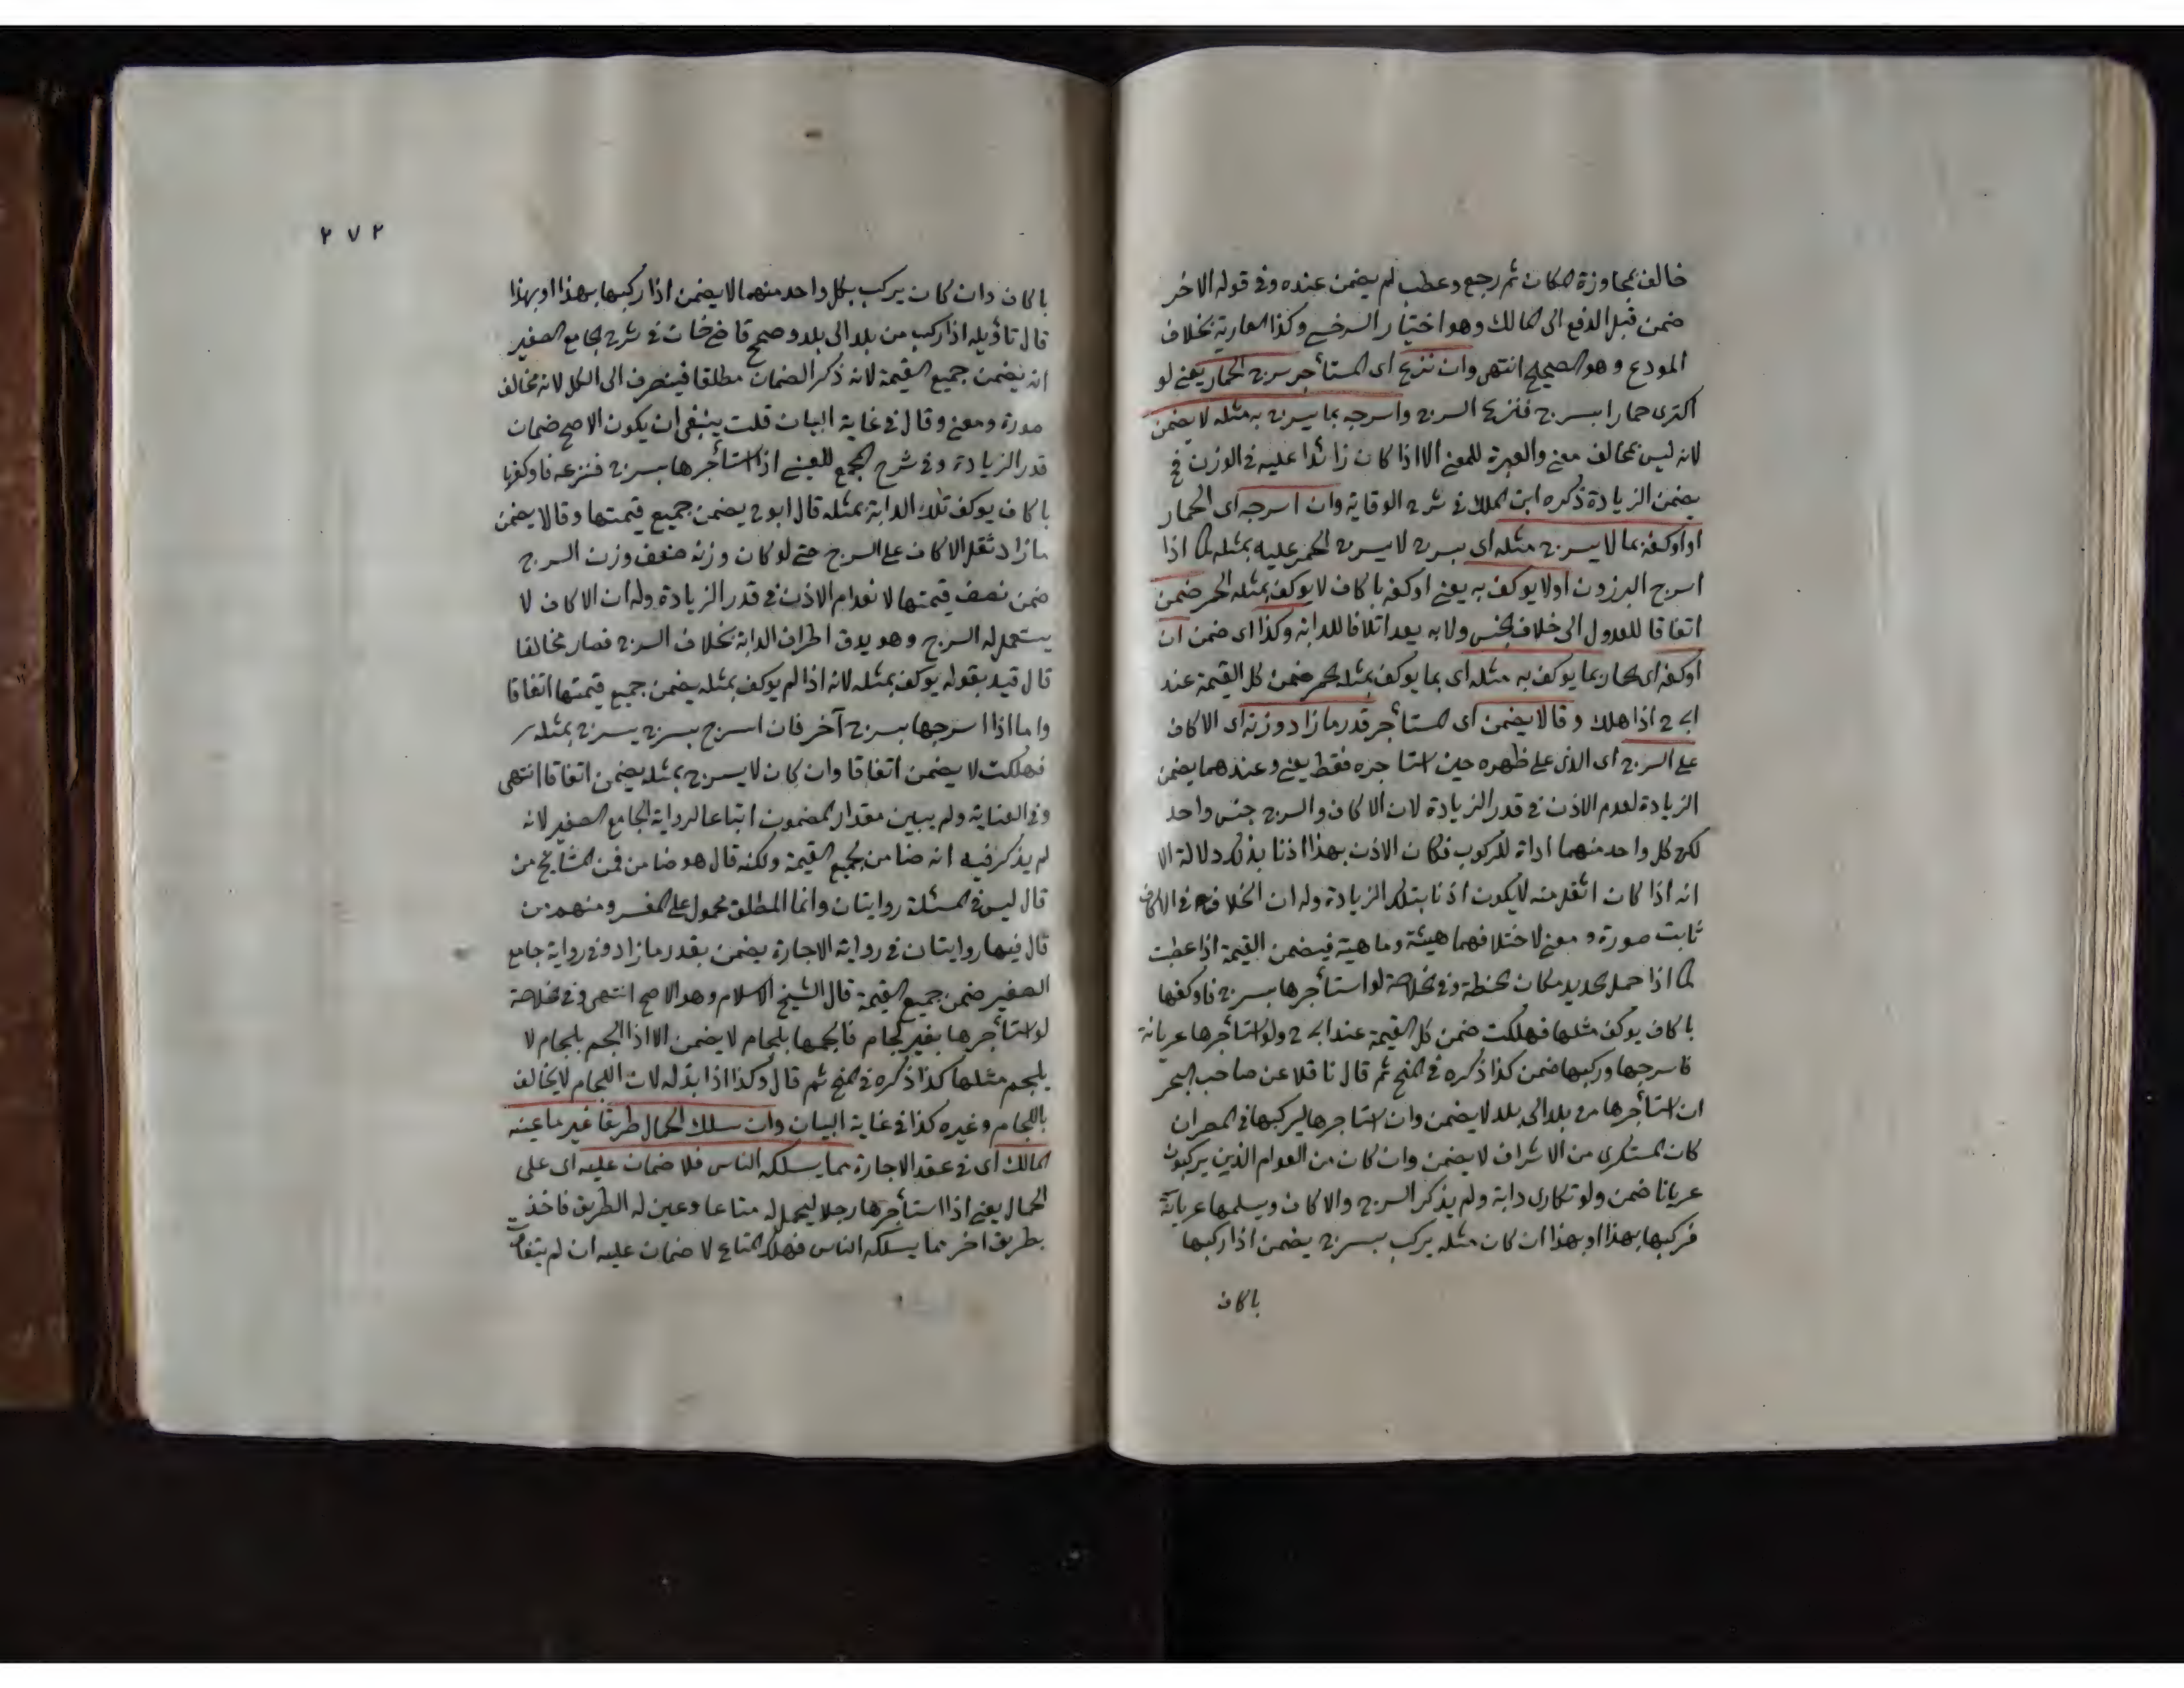 خالف بمجاوزة المكان ثم رجع وعطب لم يضمن عنده وفى قوله الاخر
ضمن قبل الدفع الى المالك وهو اختيار السرخسى وكذا العارية بخلاف
المودع وهو الصحيح انتهى وان نزع اى المستأجر سرج الحمار يعنى لو
اكترى حمارا بسرج فنزع السرج واسرجه بما يسرج به مثله لا يضمن
لانه ليس بمخالف معنى والعبرة للمعنى الا اذا كان زائدا عليه فى الوزن فح
يضمن الزيادة ذكره ابن الملك فى شرح الوقاية وان اسرجه اى الحمار
او اوكفه بما لا يسرج مثله اى بسرج لا يسرج الحمر عليه بمثله كما اذا
اسرج البرزون او لا يوكف به يعنى اوكفه باكاف لا يوكف بمثله الحمر ضمن
اتفاقا للعدول الى خلاف الجنس ولا به يعد اتلافا للدابة وكذا اى ضمن ان
اوكفه اى الحمار بما يوكف به مثله اى بما يوكف بمثله الحمر ضمن كل القيمة عند
ابى ح اذا هلك وقالا يضمن اى المستأجر قدر ما زاد وزنه اى الاكاف
على السرج اى الذى على ظهره حين استاجره فقط يعنى وعندهما يضمن
الزيادة لعدم الاذن فى قدر الزيادة لان الاكاف والسرج جنس واحد
لكن كل واحد منهما اداة للركوب فكان الاذن بهذا اذنا بذلك دلالة الا
انه اذا كان اثقل منه لا يكون اذنا بتلك الزيادة وله ان الخلاف فى الاكاف
ثابت صورة ومعنى لاختلافهما هيئة وماهية فيضمن القيمة اذا عطبت
كما اذا حمل الحديد مكان الحنطة وفى الخلاصة لو استأجرها بسرج فاوكفها
باكاف يوكف مثلها فهلكت ضمن كل القيمة عند ابى ح ولو استأجرها عريانة
فاسرجها وركبها ضمن كذا ذكره فى المنح ثم قال ناقلا عن صاحب البحر
ان استأجرها من بلد الى بلد لا يضمن وان استاجرها ليركبها فى المصر ان
كان المستكرى من الاشراف لا يضمن وان كان من العوام الذين يركبون
عريانا ضمن ولو تكارى دابة ولم يذكر السرج والاكاف ويسلمها عريانة
فركبها بهذا او بهذا ان كان مثله يركب بسرج يضمن اذا ركبها
باكاف
٢٧٢
باكاف وان كان يركب بكل واحد منهما لا يضمن اذا ركبها بهذا او بهذا
قال تأويله اذا ركب من بلد الى بلد وصحح قاضى خان فى شرح الجامع الصغير
انه يضمن جميع القيمة لانه ذكر الضمان مطلقا فينصرف الى الكل لانه مخالف
صورة ومعنى وقال فى غاية البيان قلت ينبغى ان يكون الاصح ضمان
قدر الزيادة وفى شرح المجمع للعينى اذا استأجرها بسرج فنزعه فاوكفها
باكاف يوكف تلك الدابة بمثله قال ابو ح يضمن جميع قيمتها وقالا يضمن
ما زاد ثقل الاكاف على السرج حتى لو كان وزنه ضعف وزن السرج
ضمن نصف قيمتها لانعدام الاذن فى قدر الزيادة وله ان الاكاف لا
يستعمل له السرج وهو يدق اطراف الدابة بخلاف السرج فصار مخالفا
قال قيد بقوله يوكف بمثله لانه اذا لم يوكف بمثله يضمن جميع قيمتها اتفاقا
واما اذا اسرجها بسرج آخر فان اسرج بسرج يسرج بمثله
فهلكت لا يضمن اتفاقا وان كان لا يسرج بمثله يضمن اتفاقا انتهى
وفى العناية ولم يبين مقدار المضمون اتباعا لرواية الجامع الصغير لانه
لم يذكر فيه انه ضامن بجميع القيمة ولكنه قال هو ضامن فمن المشايخ من
قال ليس فى المسئلة روايتان وانما المطلق محمول على المفسر ومنهم من
قال فيها روايتان فى رواية الاجارة يضمن بقدر ما زاد وفى رواية جامع
الصغير ضمن جميع القيمة قال الشيخ الاسلام وهو الاصح انتهى وفى الخلاصة
لو استأجرها بغير لجام فالجمها بلجام لا يضمن الا اذا الجم بلجام لا
يلجم مثلها كذا ذكره فى المنح ثم قال وكذا اذا بدله لان اللجام لا يخالف
باللجام وغيره كذا فى غاية البيان وان سلك الحمال طريقا غير ما عينه
المالك اى فى عقد الاجارة مما يسلكه الناس فلا ضمان عليه اى على
الحمال يعنى اذا استأجرها رجلا ليحمل له متاعا وعين له الطريق فاخذ
بطريق اخر مما يسلكه الناس فهلك المتاع لا ضمان عليه ان لم يتفاوت